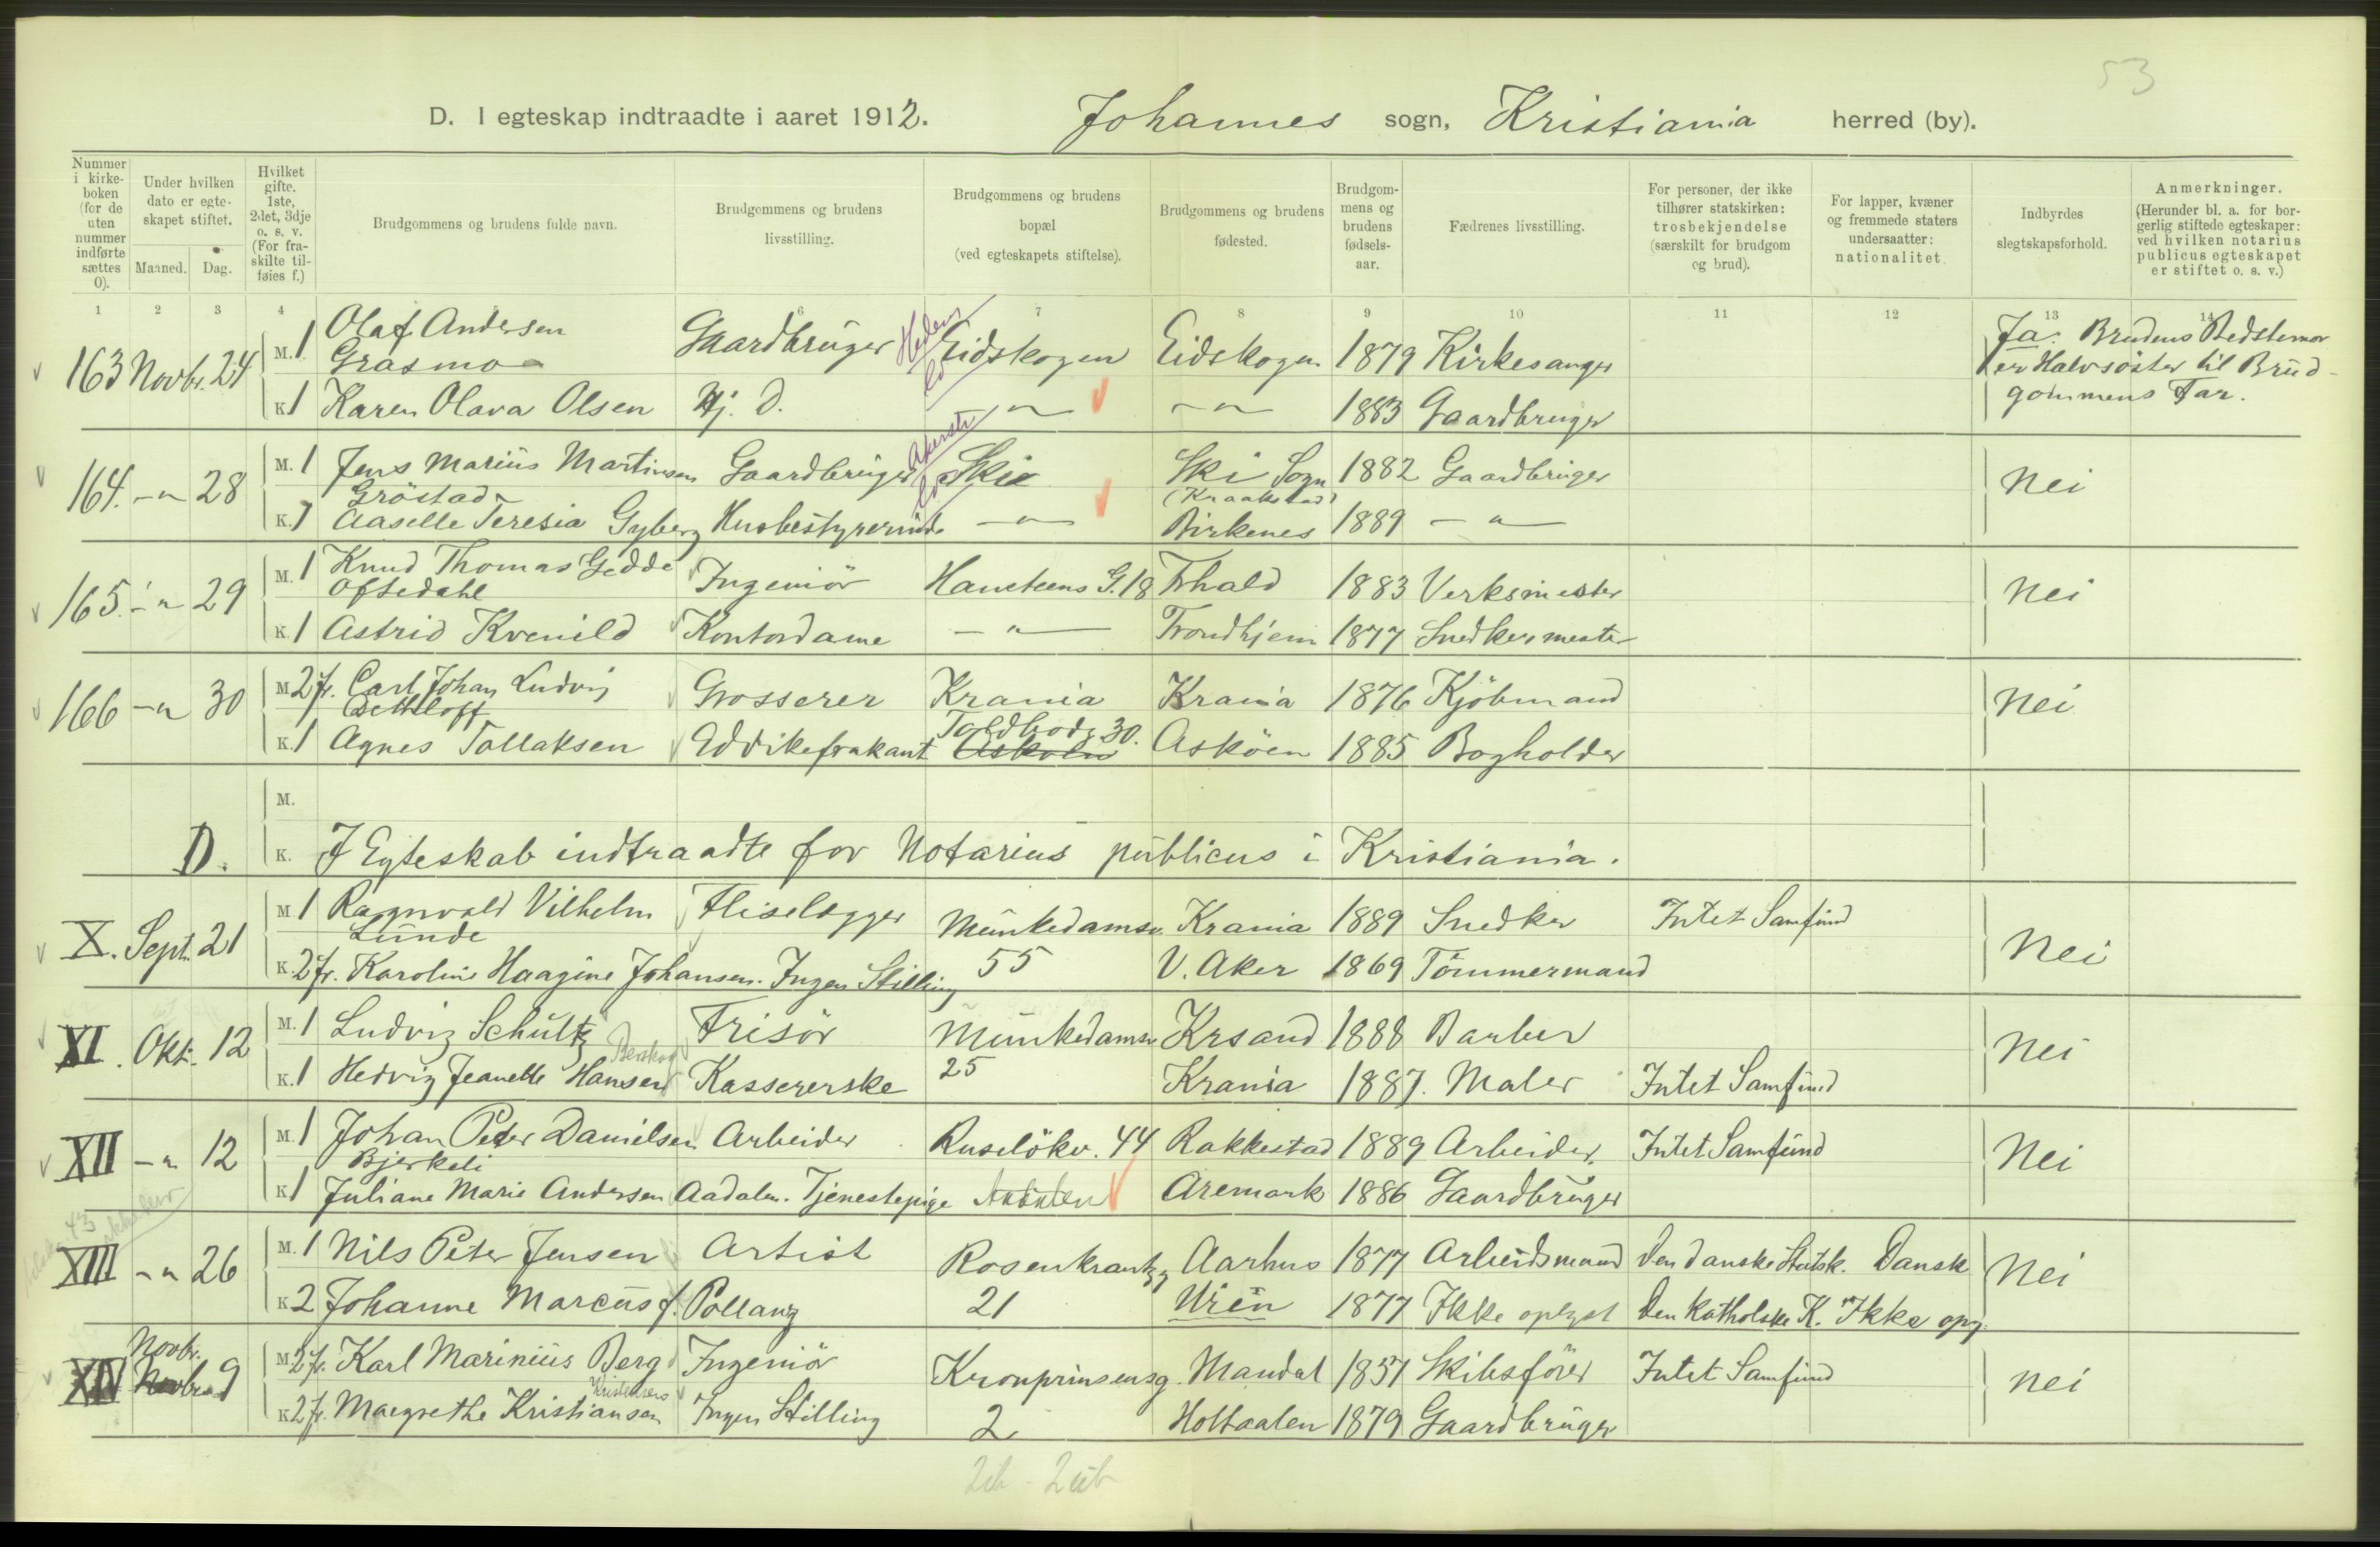 53
D. I egteskap indtraadte i aaret 1912. Johannes sogn, Kristiania herred (by).
Nummer i kirkeboken (for de uten nummer indførte sættes 0).
Under hvilken dato er egteskapet stiftet.
Maaned. Dag.
Hvilket gifte. 1ste, 2det, 3dje o. s. v. (For fraskilte tilføies f.)
Brudgommens og brudens fulde navn.
Brudgommens og brudens livsstilling.
Brudgommens og brudens bopæl (ved egteskapets stiftelse).
Brudgommens og brudens fødested.
Brudgommens og brudens fødselsaar.
Fædrenes livsstilling.
For personer, der ikke tilhører statskirken: trosbekjendelse (særskilt for brudgom og brud).
For lapper, kvæner og fremmede staters undersaatter: nationalitet
Indbyrdes slegtskapsforhold.
Anmerkninger. (Herunder bl. a. for borgerlig stiftede egteskaper: ved hvilken notarius publicus egteskapet er stiftet o. s. v.)
1 2 3 4 6 7 8 9 10 11 12 13 14
163 Novbr. 24 M. 1 Olaf Andersen Grasmo Gaardbruger Eidskogen Eidskogen 1879 Kirkesanger Ja. Brudens Bedstemor
er Halvsöster til Brud-
gommens Far.
K. 1 Karen Olava Olsen Hj. D. -"- -"- 1883 Gaardbruger
164. -"- 28 M. 1 Jens Marius Martinsen Gröstad Gaardbruger Ski Ski Sogn (Kraakstad) 1882 Gaardbruger Nei
K. 1 Aaselle Teresia Gyberg Husbestyrerinde -"- Birkenes 1889 -"-
165. -"- 29 M. 1 Knud Thomas Gedde Oftedahl Ingeniör Hansteens G. 18 Frhald 1883 Verksmester Nei
K. 1 Astrid Kvenild Kontordame -"- Trondhjem 1877 Snedkermester
166 -"- 30 M. 2 f. Carl Johan Ludvig Detthloff Grosserer Krania Krania 1876 Kjöbmand Nei
K. 1 Agnes Tollaksen Eddikefrakant Toldbodg 30. Asköen 1885 Bogholder
M.
D. K. I Egteskab indtraadte for Notarius publicus i Kristiania.
X. Sept. 21 M. 1 Ragnvald Vilhelm Lunde Fliselægger Munkedamsv. 55 Krania 1889 Snedker Intet Samfund Nei
K. 2 fr. Karoline Haagine Johansen. Ingen Stilling V. Aker 1869 Tömmermand
XI. Okt. 12 M. 1 Ludvig Schultz Frisör Munkedamsv 25 Krsand 1888 Barber Nei
K. 1 Hedvig Jeanette Hansen Kassererske Krania 1887. Maler Intet Samfund
XII -"- 12 M. 1 Johan Peder Danielsen Bjerkeli Arbeider Ruselökv. 44 Rakkestad 1889 Arbeider. Intet Samfund Nei
K. 1 Juliane Marie Andersen Aadalen. Tjenestepige Aremark 1886 Gaardbruger
XIII -"- 26 M. 1 Nils Peter Jensen Artist Rosenkrantzg 21 Aarhus 1877 Arbeidsmand Den danske Statsk. Dansk Nei
K 2 Johanne Marcus f. Pollang Wien 1877 Ikke oplyst Den katholske K. Ikke opg.
XIV Novbr. 9 M. 2 fr. Karl Marinius Berg Ingeniör Kronprinsensg. 2 Mandal 1851 Skibsförer Intet Samfund Nei
Kristensen
K. 2 fr. Margrethe Kristiansen Ingen Stilling Holtaalen 1879 Gaardbruger